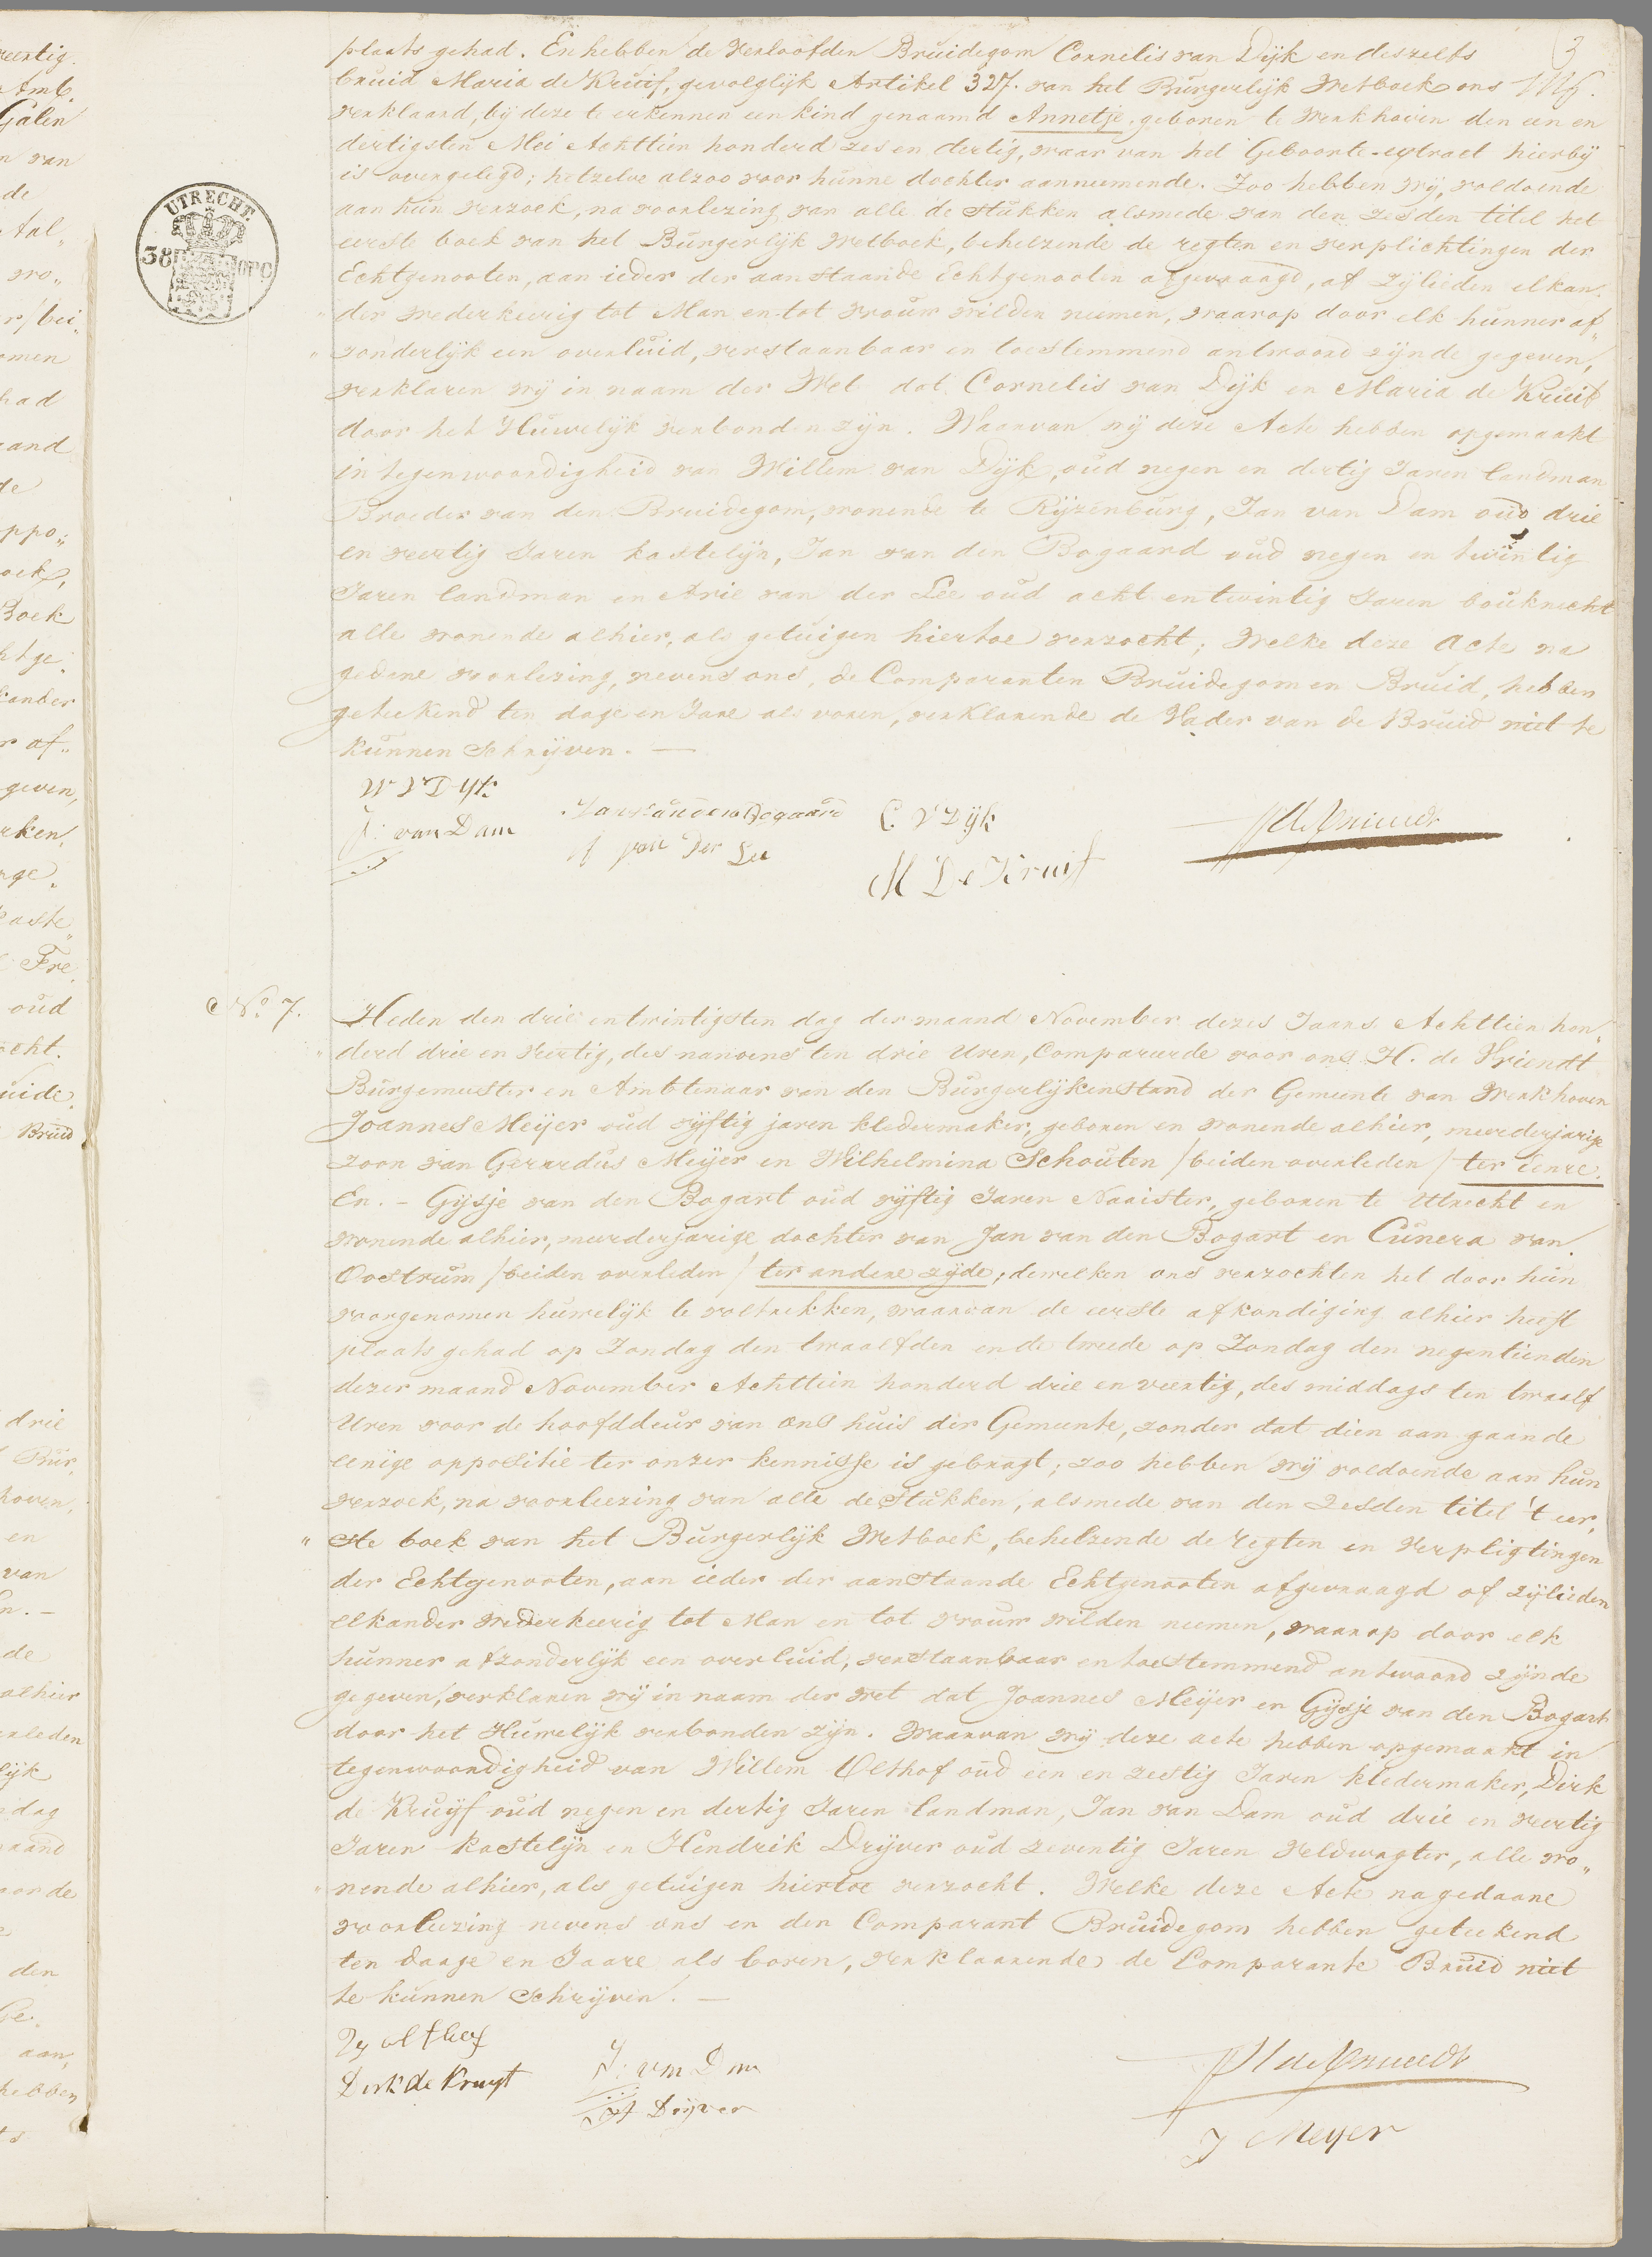 3
plaats gehad. En hebben de verloofden Bruidegom Cornelis van Dijk en deszelfs
bruid Maria de Kruif, gevolglijk Artikel 327. van het Burgerlijk Wetboek ons
verklaard, bij deze te erkennen een kind genaamd Annetje, geboren te Werkhoven den een en
dertigsten Mei Achttien honderd zes en dertig, waar van het Geboorte-extract hierbij
is overgelegd; hetzelve alzoo voor hunne dochter aannemende. Zoo hebben wij, voldoende
aan hun verzoek, na voorlezing van alle de stukken alsmede van den zesden titel het
eerste boek van het Burgerlijk Wetboek, behelzende de regten en verplichtingen der
Echtgenooten, aan ieder der aanstaande Echtgenooten afgevraagd, of zijlieden elkan„
„der wederkeerig tot Man en tot vrouw wilden nemen, waarop door elk hunner af„
„zonderlijk een overluid, verstaanbaar en toestemmend antwoord zijnde gegeven,
verklaren wij in naam der Wet dat Cornelis van Dijk en Maria de Kruif
door het Huwelijk verbonden zijn. Waarvan wij deze Acte hebben opgemaakt
in tegenwoordigheid van Willem van Dijk, oud negen en dertig Jaren landman
Broeder van den Bruidegom, wonende te Rijzenburg, Jan van Dam oud drie
en veertig Jaren kastelijn, Jan van den Bogaard oud negen en twintig
Jaren landman en Arie van der Lee oud acht en twintig Jaren bouknecht
alle wonende alhier, als getuigen hiertoe verzocht; Welke deze Acte na
gedene voorlezing, nevens ons, de Comparanten Bruidegom en Bruid, hebben
geteekend ten dage en Jare als voren, verklarende de Vader van de Bruid niet te
kunnen schrijven. —
UTRECHT.
38
W V Dyk
J: van Dam
Jan van den Bogaard
A van der Lee
C. V Dijk
M De Kruif
H de Vriendt
No. 7.
Heden den drie en twintigsten dag der maand November dezes Jaars Achttien hon„
„derd drie en veertig, des namens ten drie Uren, Compareerde voor ons H. de Vriendt
Burgemeester en Ambtenaar van den Burgerlijkenstand der Gemeente van Werkhoven
Joannes Meijer oud vijftig jaren kledermaker, geboren en wonende alhier, meerderjarige
zoon van Gerardus Meijer en Wilhelmina Schouten / beiden overleden / ter eenre.
En. – Gijsje van den Bogart oud vijftig Jaren Naaister, geboren te Utrecht en
wonende alhier, meerderjarige dochter van Jan van den Bogart en Cunera van
Oostrum / beiden overleden / ter andere zijde; dewelken ons verzochten het door hun
voorgenomen huwelijk te voltrekken, waarvan de eerste afkondiging alhier heeft
plaats gehad op Zondag den twaalfden en de tweede op Zondag den negentienden
dezer maand November Achttien honderd drie en veertig, des middags ten twaalf
Uren voor de hoofddeur van ons huis der Gemeente, zonder dat dien aangaande
eenige oppositie ter onzer kennisse is gebragt; zoo hebben wij voldoende aan hun
verzoek, na voorleezing van alle de stukken, alsmede van den Zesden titel 't eer„
„ste boek van het Burgerlijk Wetboek, behelzende de regten en verpligtingen
der Echtgenooten, aan ieder der aanstaande Echtgenooten afgevraagd of zijlieden
elkander wederkeerig tot Man en tot vrouw wilden neemen, waarop door elk
hunner afzonderlijk een overluid, verstaanbaar en toestemmend antwoord zijnde
gegeven, verklaren wij in naam der wet dat Joannes Meijer en Gijsje van den Bogart
door het Huwelijk verbonden zijn. Waarvan wij deze acte hebben opgemaakt in
tegenwoordigheid van Willem Olthof oud een en zestig Jaren kledermaker, Dirk
de Kruijf oud negen en dertig Jaren landman, Jan van Dam oud drie en veertig
Jaren kastelijn en Hendrik Drijver oud zeventig Jaren veldwagter, alle wo„
„nende alhier, als getuigen hiertoe verzocht. Welke deze Acte na gedaane
voorleezing nevens ons en den Comparant Bruidegom hebben geteekend
ten daage en Jaare als boven, verklaarende de Comparante Bruid niet
te kunnen schrijven. —
W olthof
Dirk de Kruyf
J: van Dam
H Drijver
H de Vriendt
J Meyer